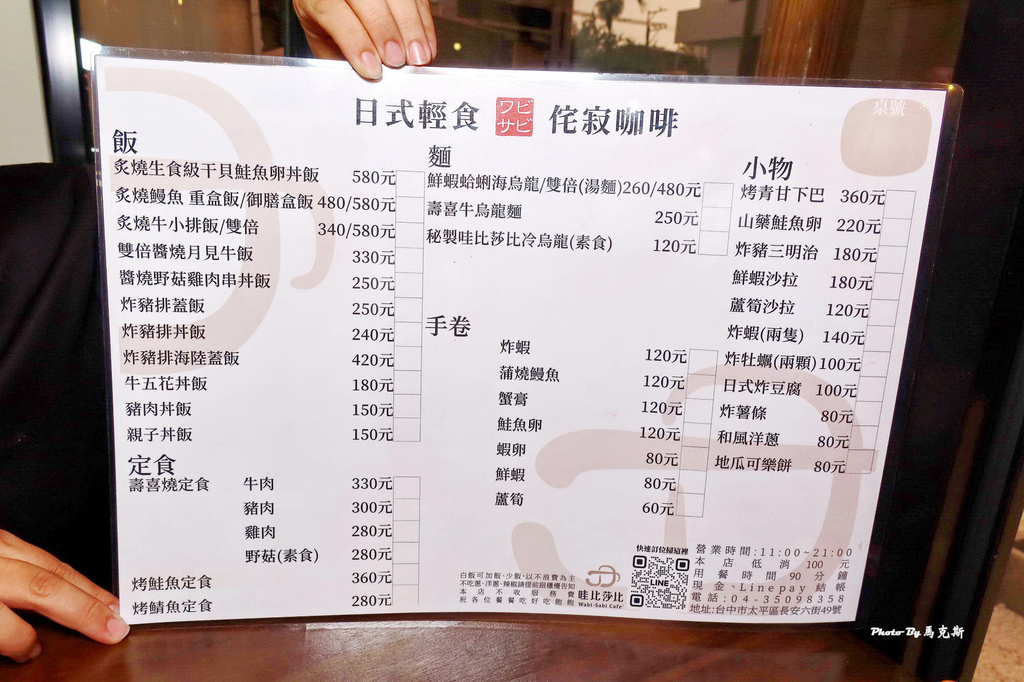 日式輕食 ワビサビ 侘寂咖啡
桌號
飯
炙燒生食級干貝鮭魚卵丼飯 580元
炙燒鰻魚 重盒飯/御膳盒飯 480/580元
炙燒牛小排飯/雙倍 340/580元
雙倍醬燒月見牛飯 330元
醬燒野菇雞肉串丼飯 250元
炸豬排蓋飯 250元
炸豬排丼飯 240元
炸豬排海陸蓋飯 420元
牛五花丼飯 180元
豬肉丼飯 150元
親子丼飯 150元
定食
壽喜燒定食 牛肉 330元
豬肉 300元
雞肉 280元
野菇(素食) 280元
烤鮭魚定食 360元
烤鯖魚定食 280元
麵
鮮蝦蛤蜊海烏龍/雙倍(湯麵)260/480元
壽喜牛烏龍麵 250元
秘製哇比莎比冷烏龍(素食) 120元
手卷
炸蝦 120元
蒲燒鰻魚 120元
蟹膏 120元
鮭魚卵 120元
蝦卵 80元
鮮蝦 80元
蘆筍 60元
小物
烤青甘下巴 360元
山藥鮭魚卵 220元
炸豬三明治 180元
鮮蝦沙拉 180元
蘆筍沙拉 120元
炸蝦(兩隻) 140元
炸牡蠣(兩顆) 100元
日式炸豆腐 100元
炸薯條 80元
和風洋蔥 80元
地瓜可樂餅 80元
白飯可加飯、少飯,以不浪費為主
不吃蔥、洋蔥、辣椒請提前跟櫃檯告知
本店不收服務費
祝各位餐餐吃好吃飽飽
哇比莎比
Wabi-Sabi Cafe'
快速訂位掃這裡
LINE
營業時間:11:00~21:00
本店低消100元
用餐時間90分鐘
現金、Linepay結帳
電話:04-35098358
地址:台中市太平區長安六街49號
Photo By 馬克斯